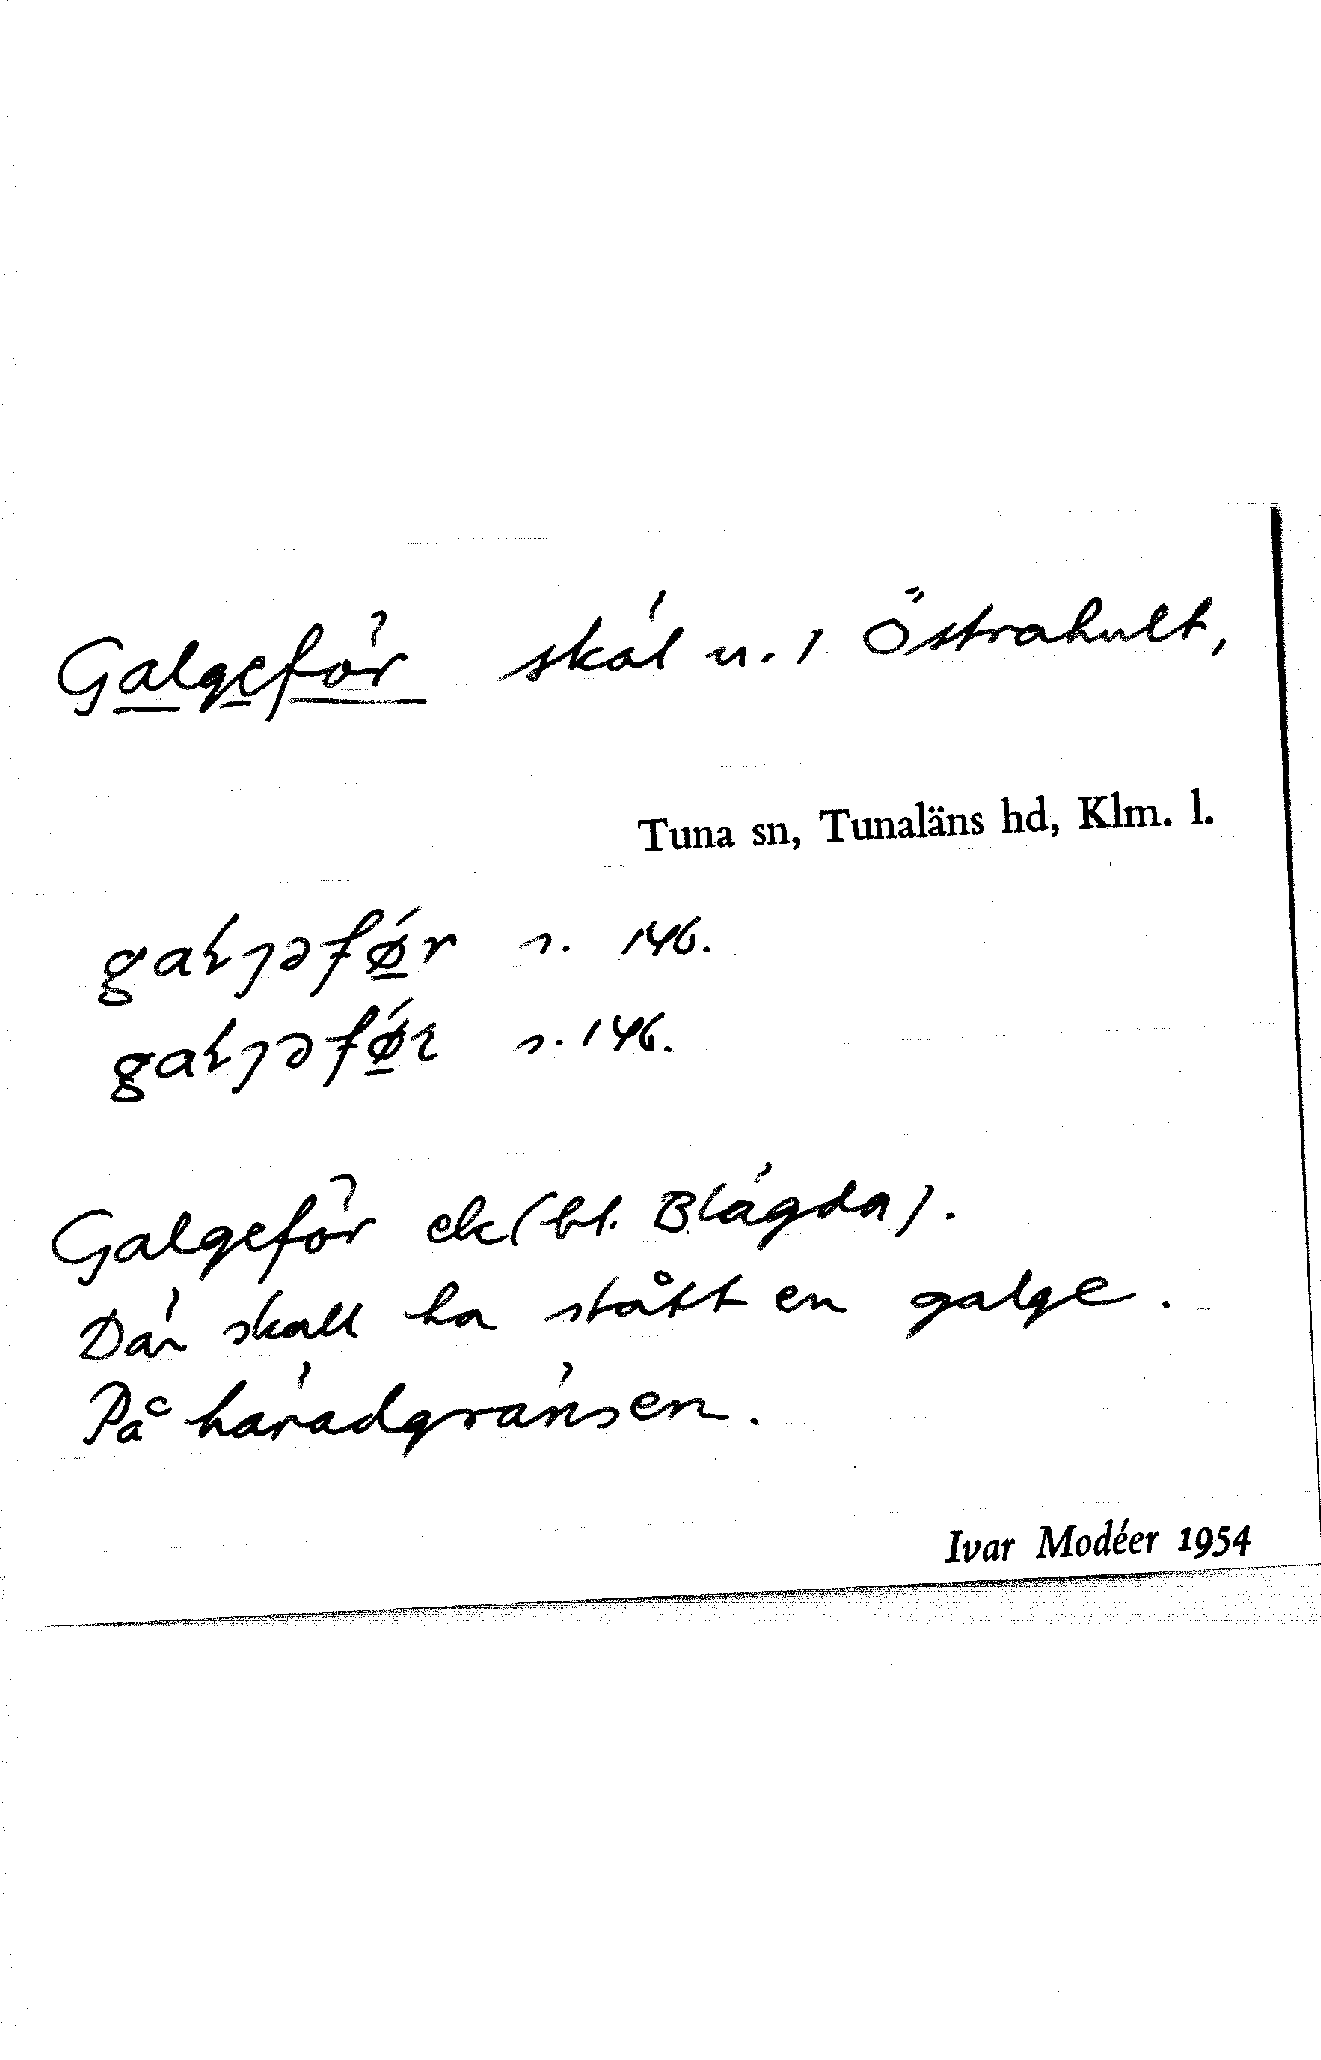 Galgeför skäl u. / Östrahult,
Tuna sn, Tunaläns hd, Klm. l.
gaɫjəfǿ̱r s. 146.
gaɫjəfǿ̱ɽ s. 146.
Galgeför ek (bl. Blägda).
Där skall ha stått en galge.
På häradgränsen.
Ivar Modéer 1954